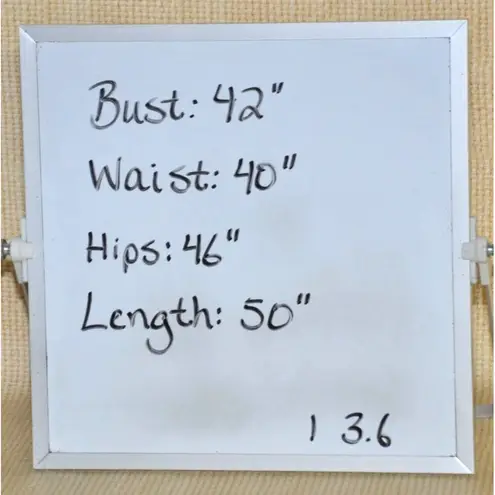 Bust: 42"
Waist: 40"
Hips: 46"
Length: 50"
1 3.6